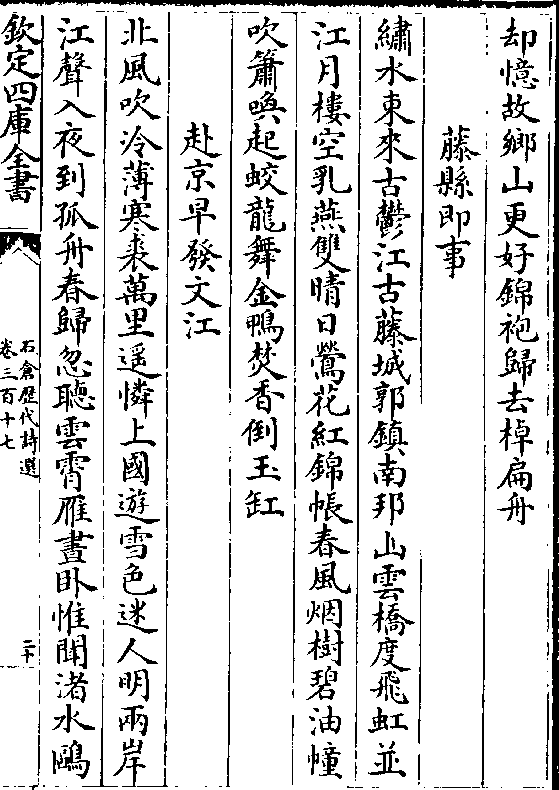 却憶故鄉山更好錦袍歸去棹扁舟
藤縣即事
繡水東來古鬱江古藤城郭鎮南邦山雲橋度飛虹並
江月樓空乳燕雙晴日鶯花紅錦帳春風烟樹碧油幢
吹簫喚起蛟龍舞金鴨焚香倒玉缸
赴京早發文江
北風吹冷薄寒裘萬里遥憐上國遊雪色迷人明兩岸
江聲入夜到孤舟春歸忽聽雲霄雁晝卧惟聞渚水鷗
欽定四庫全書
石倉歷代詩選
卷三百十七
二十